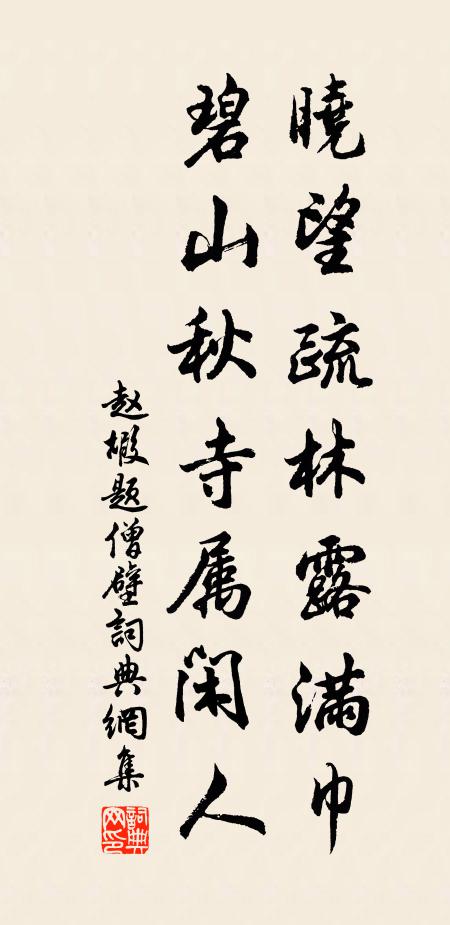 曉望疏林露滿巾
碧山秋寺属闲人
赵嘏題僧壁詞典網集
詞典网印